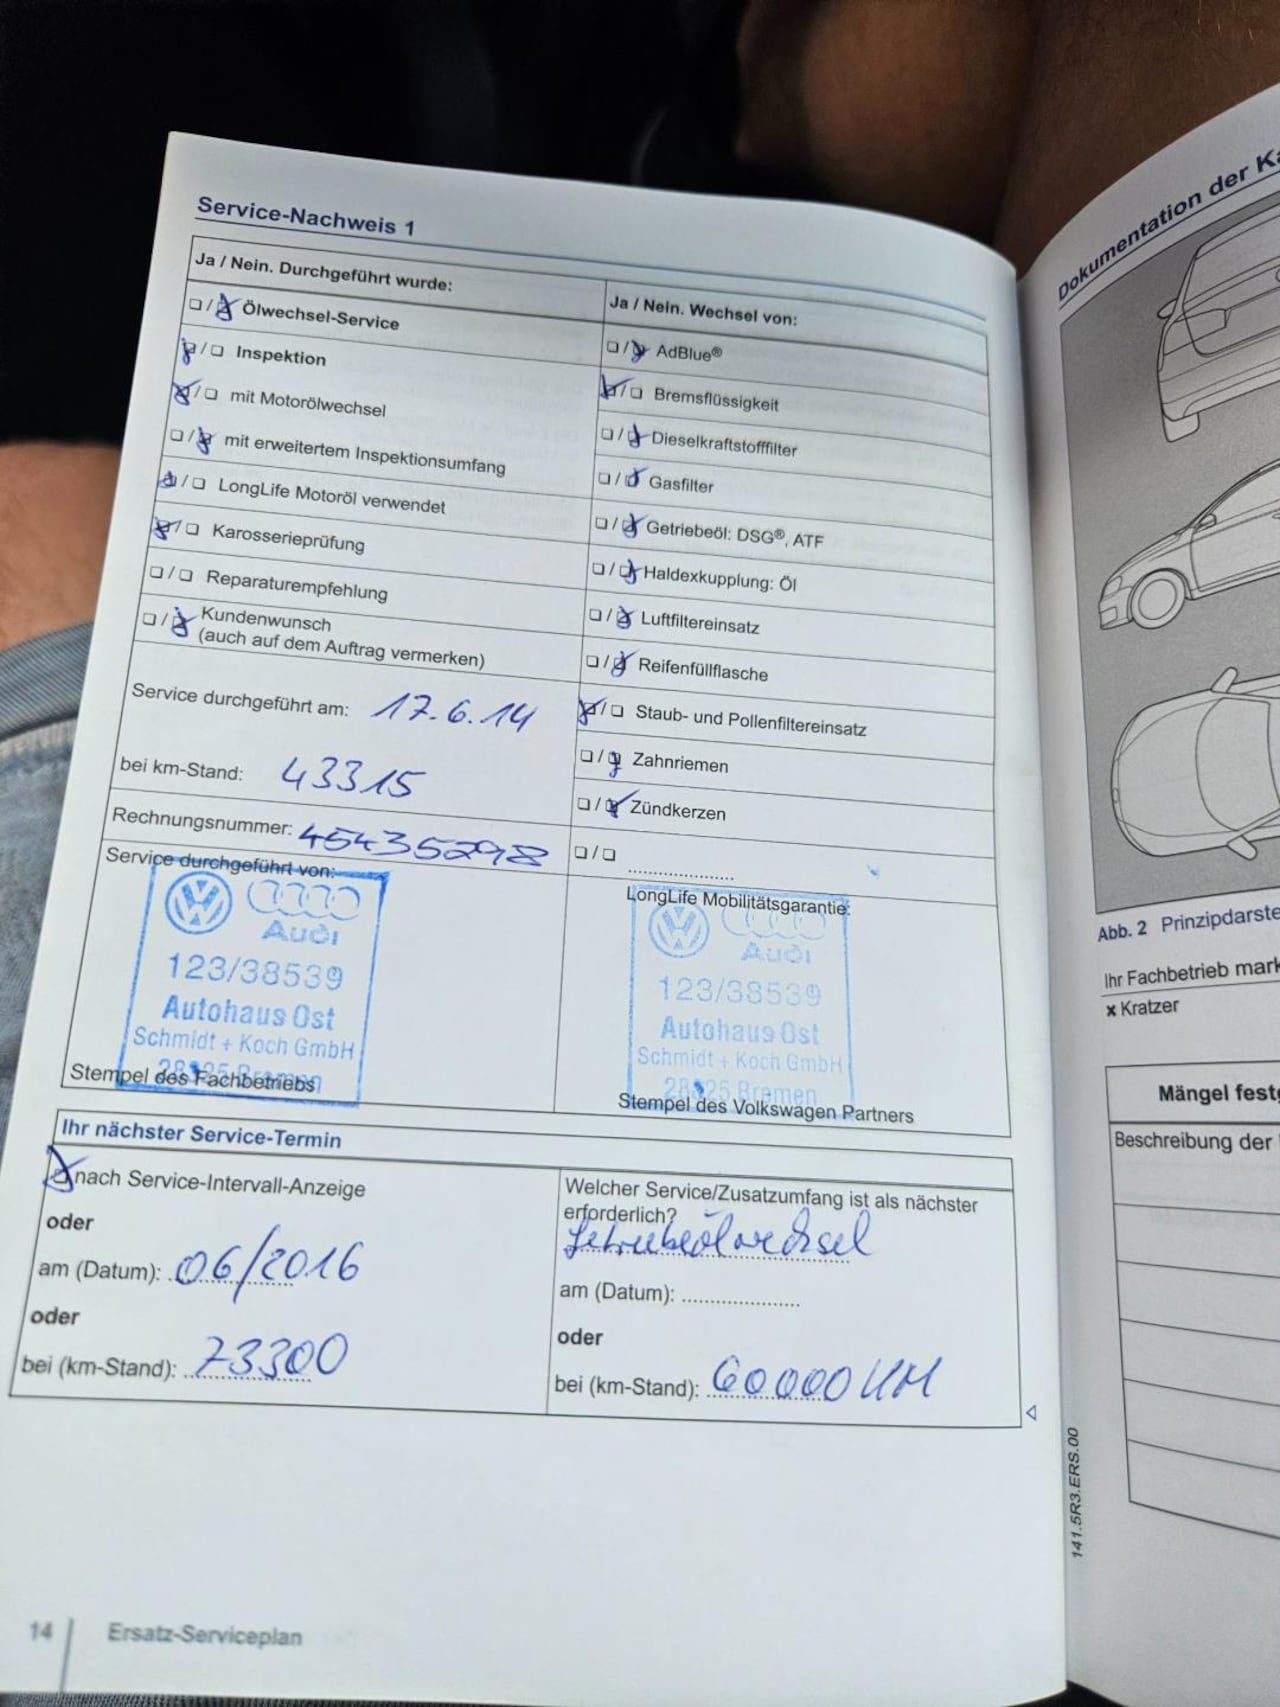 Service-Nachweis 1
Ja / Nein. Durchgeführt wurde:
❏ / ❏ Ölwechsel-Service
❏ / ❏ Inspektion
❏ / ❏ mit Motorölwechsel
❏ / ❏ mit erweitertem Inspektionsumfang
❏ / ❏ LongLife Motoröl verwendet
❏ / ❏ Karosserieprüfung
❏ / ❏ Reparaturempfehlung
❏ / ❏ Kundenwunsch
(auch auf dem Auftrag vermerken)
Service durchgeführt am: 17.6.14
bei km-Stand: 43315
Rechnungsnummer: 45435298
Ja / Nein. Wechsel von:
❏ / ❏ AdBlue®
❏ / ❏ Bremsflüssigkeit
❏ / ❏ Dieselkraftstofffilter
❏ / ❏ Gasfilter
❏ / ❏ Getriebeöl: DSG®, ATF
❏ / ❏ Haldexkupplung: Öl
❏ / ❏ Luftfiltereinsatz
❏ / ❏ Reifenfüllflasche
❏ / ❏ Staub- und Pollenfiltereinsatz
❏ / ❏ Zahnriemen
❏ / ❏ Zündkerzen
❏ / ❏ ....................
Service durchgeführt von:
VW
Audi
123/38539
Autohaus Ost
Schmidt + Koch GmbH
28325 Bremen
Stempel des Fachbetriebs
LongLife Mobilitätsgarantie:
VW
Audi
123/38539
Autohaus Ost
Schmidt + Koch GmbH
28325 Bremen
Stempel des Volkswagen Partners
Ihr nächster Service-Termin
❏ nach Service-Intervall-Anzeige
oder
am (Datum): 06/2016
oder
bei (km-Stand): 73300
Welcher Service/Zusatzumfang ist als nächster
erforderlich?
Getriebeölwechsel
am (Datum): ....................
oder
bei (km-Stand): 60000 KM
14 Ersatz-Serviceplan
141.5R3.ERS.00
Dokumentation der Ka
Abb. 2 Prinzipdarste
Ihr Fachbetrieb mark
× Kratzer
Mängel festg
Beschreibung der